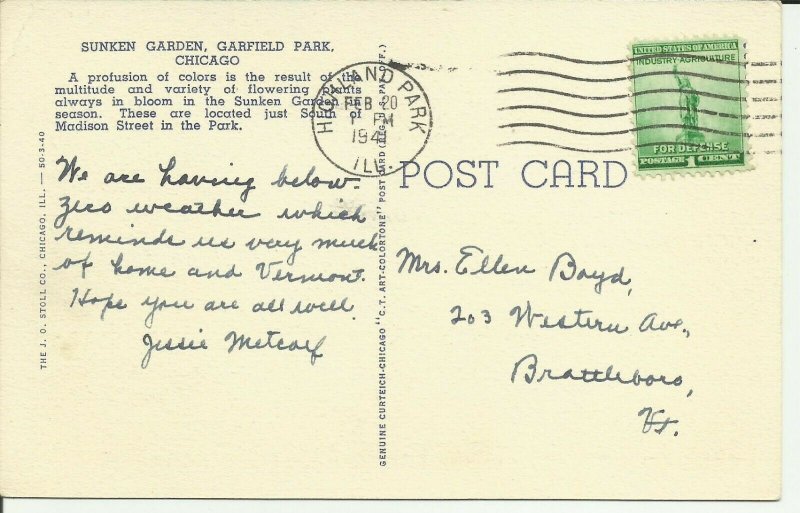 SUNKEN GARDEN, GARFIELD PARK,
CHICAGO
A profusion of colors is the result of the
multitude and variety of flowering plants
always in bloom in the Sunken Garden
season. These are located just South of
Madison Street in the Park.
We are having below-
zero weather which
reminds us very much
of home and Vermont.
Hope you are all well.
Jessie Metcalf
THE J. O. STOLL CO., CHICAGO, ILL. — 50-3-40
GENUINE CURTEICH-CHICAGO "C.T. ART-COLORTONE" POST CARD (REG. U.S. PAT. OFF.)
HIGHLAND PARK
FEB 20
1 PM
194
ILL.
UNITED STATES OF AMERICA
INDUSTRY-AGRICULTURE
FOR DEFENSE
POSTAGE 1 CENT
POST CARD
Mrs. Ellen Boyd,
203 Western Ave.,
Brattleboro,
Vt.